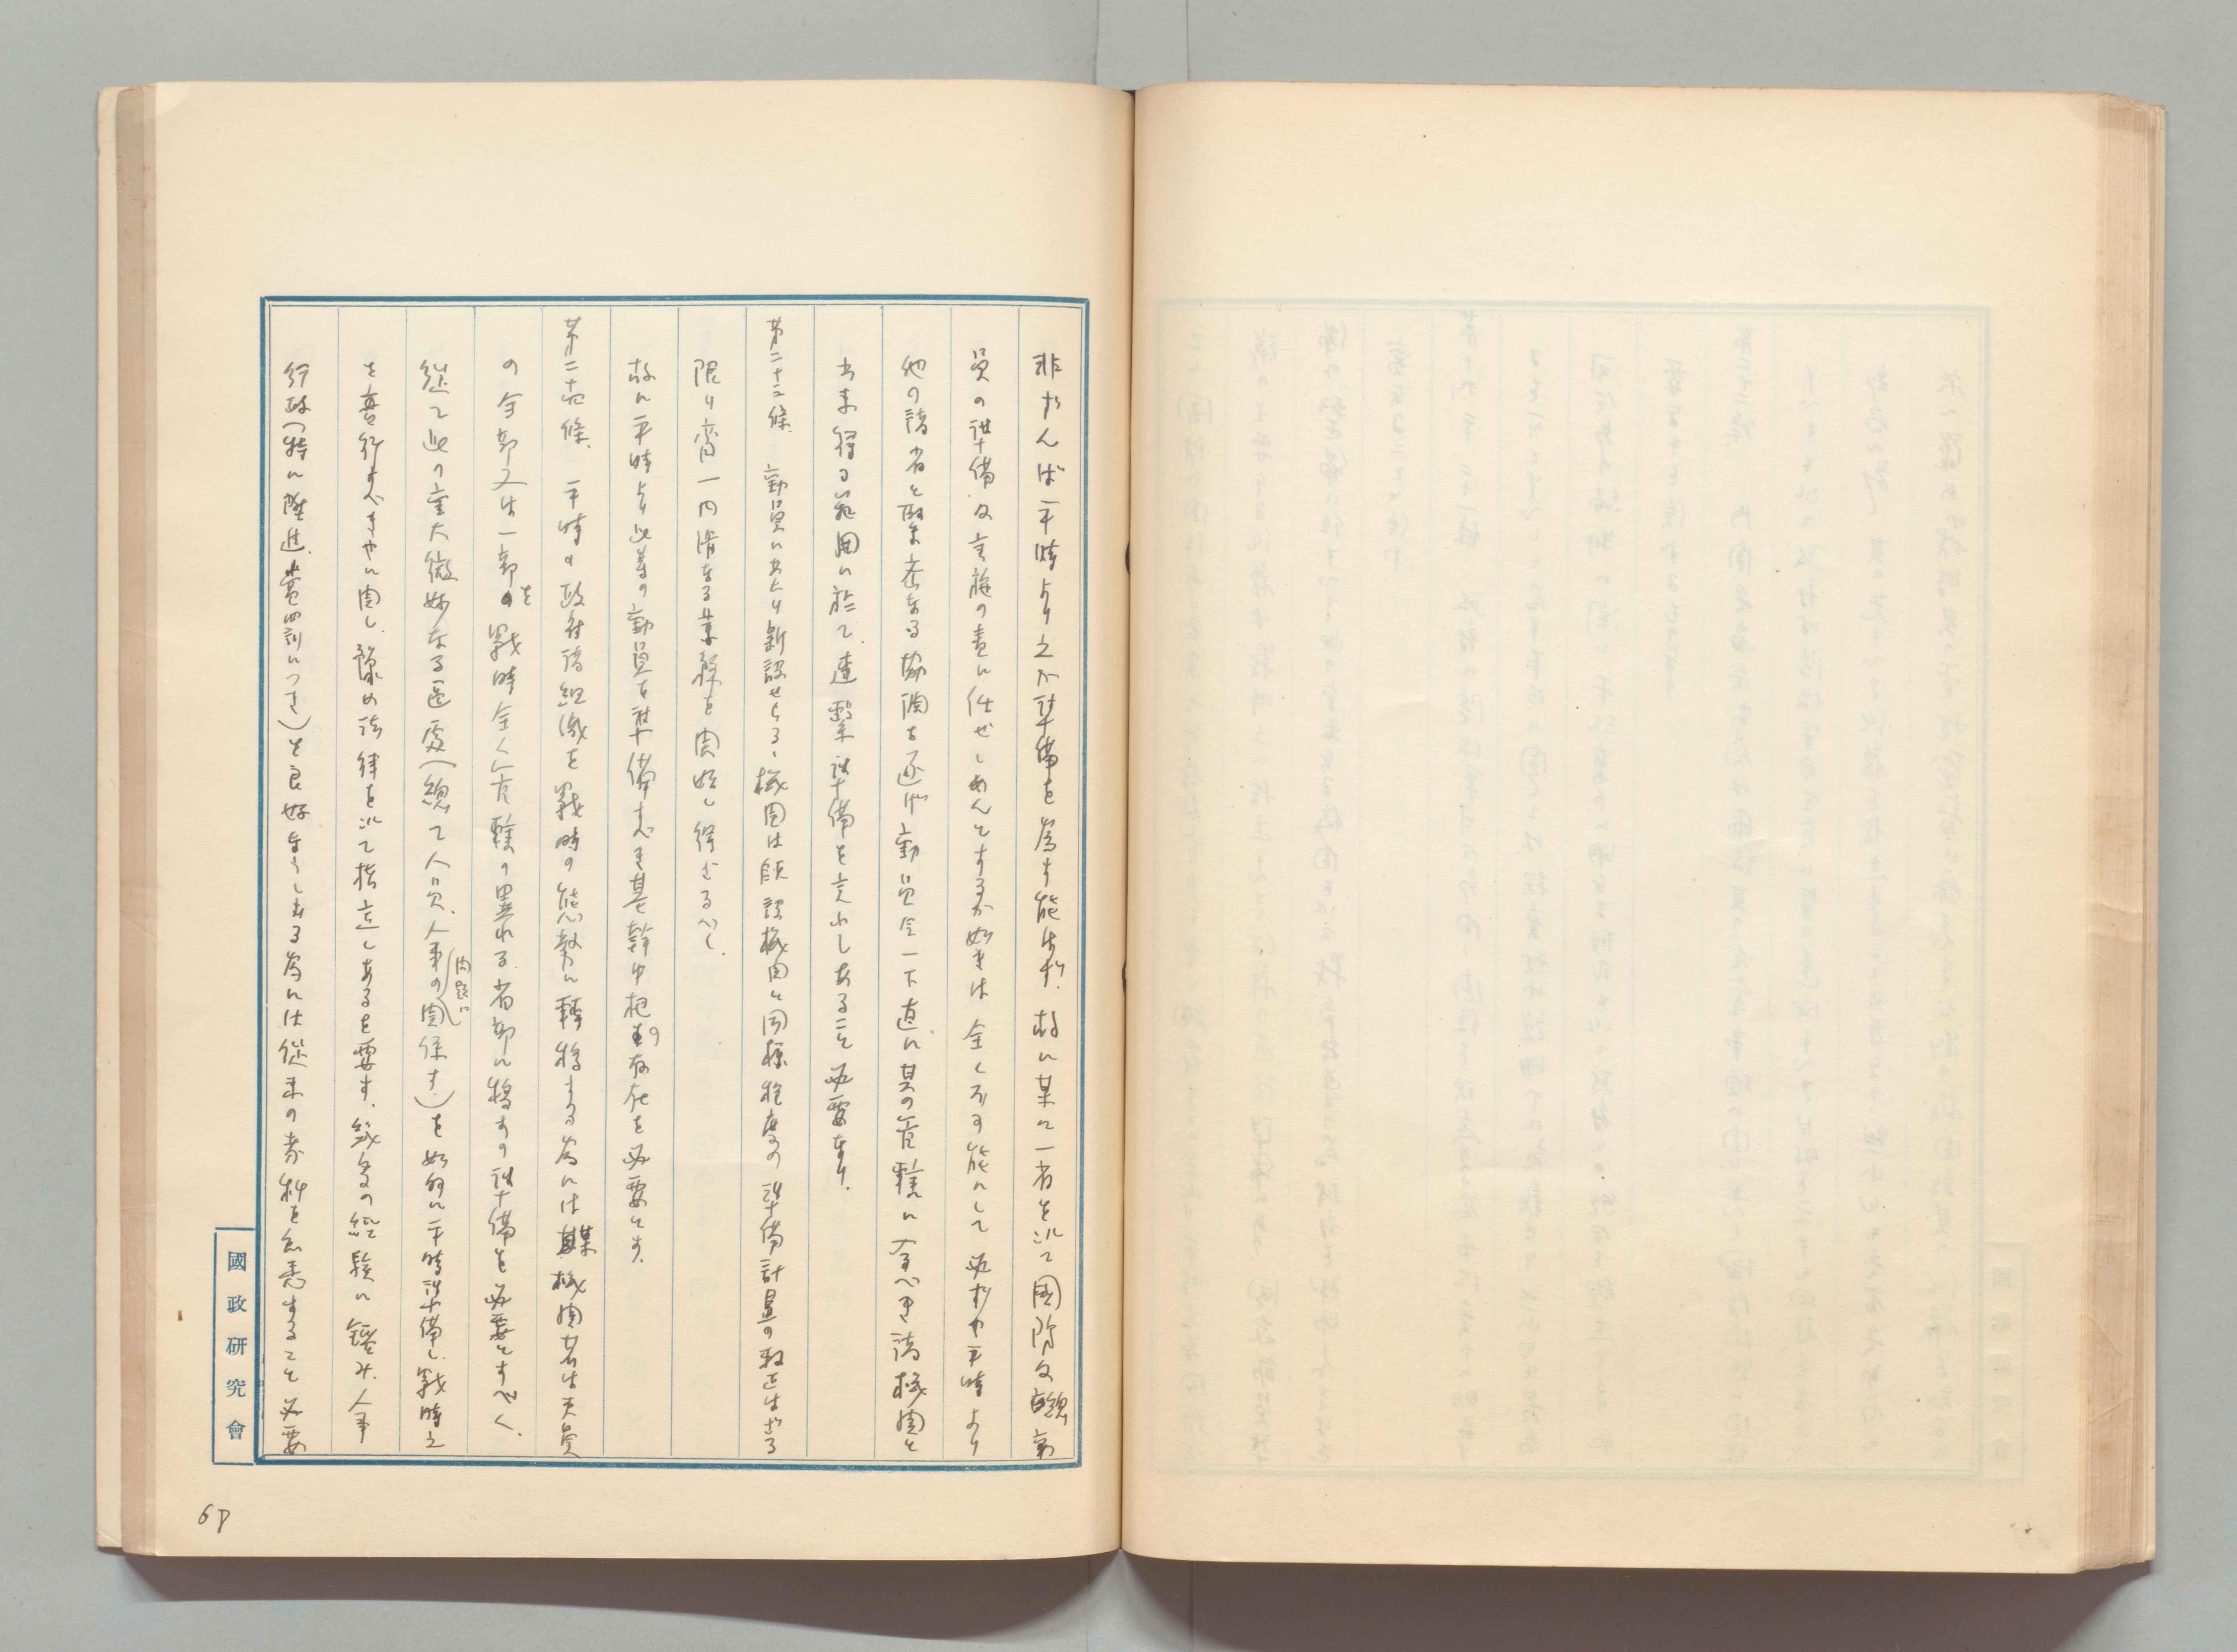 非ずんば平時より之が準備を為す能はず。故に某に一省を以て國防及總動
員の準備及實施の責に任ぜしめんとするが如きは全く不可能にして必ずや平時より
他の諸省と緊密なる協調を遂げ動員令一下直に其の管轄に入るべき諸機関と
出来得る範囲に於て、連繋準備を完ふしあること必要なり。
第二十三條、動員にあたり新設せらるゝ機関は既設機関と同様程度の準備計畫の下にはざる
限り齊一円滑なる業務を開始し得ざるべし、
故に平時より此等の動員を準備すべき基幹中枢の存在を必要とす。
第二十四條、平時の政府諸組織を戦時の態勢に轉移する為には某機関若は其員
の全部又は一部を戦時全く管轄の異れる省部に移すの準備を必要とすべく、
従て此の重大微妙なる區處(總て人員、人事の問題に関係す)を如何に平時準備し、戦時之
を善行すべきやに関し、豫め法律を以て樹立しあるを要す、幾多の經験に鑑み、人事
行政(特に陞進、賞罰につき)を良好ならしむる為には従来の資料を知悉すること必要
國政研究會
68